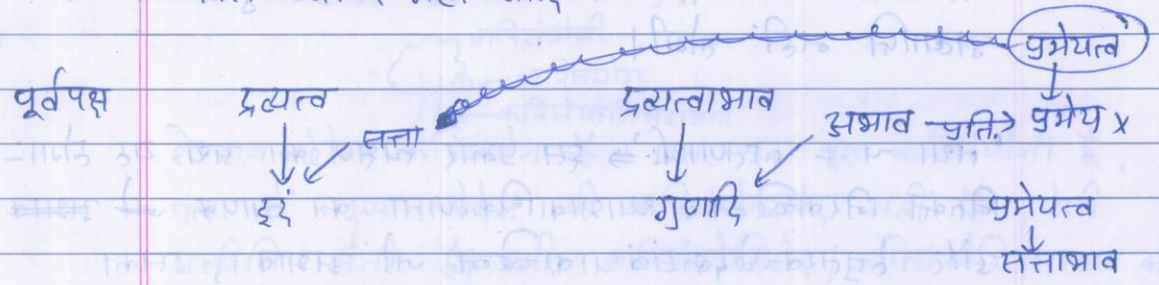 प्रमेयत्व
पूर्वपक्ष द्रव्यत्व द्रव्यत्वाभाव अभाव प्रति. प्रमेय x
सत्ता
इदं गुणादि प्रमेयत्व
सत्ताभाव